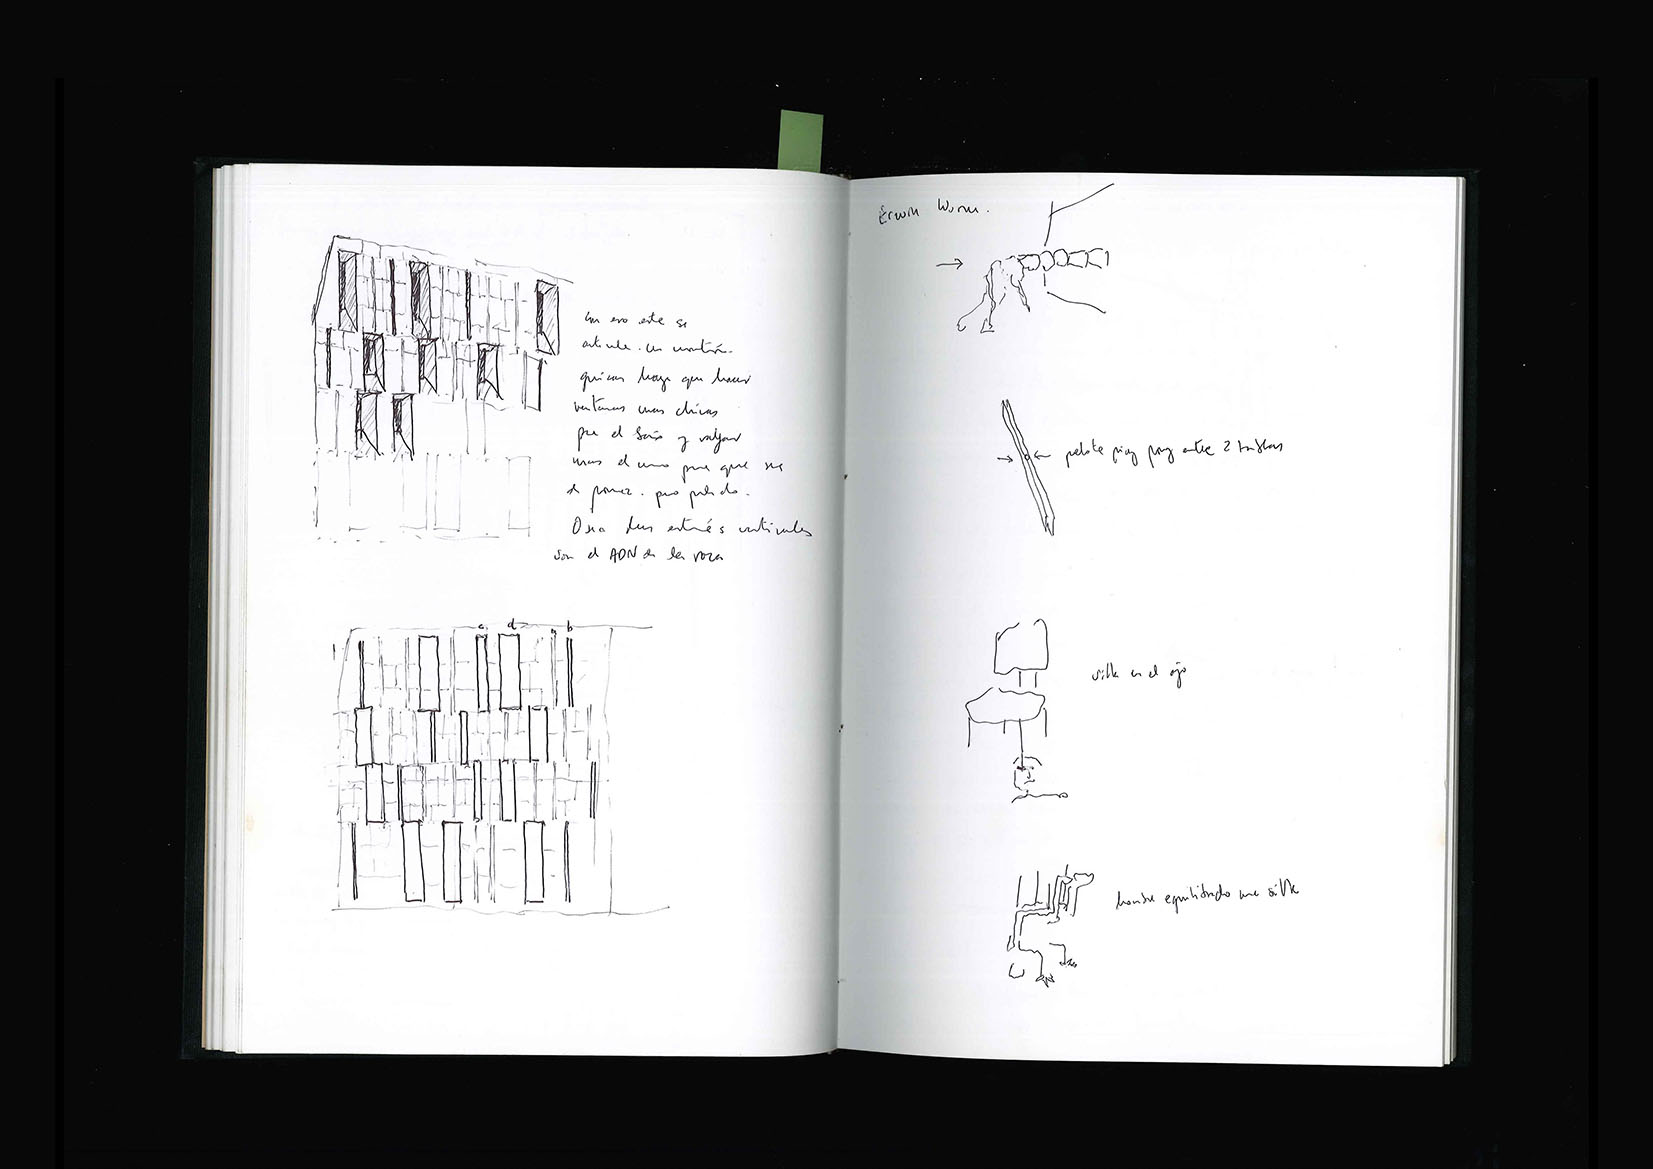 con eso este se
articule. in
quizas haya que hacer
ventanas mas chicas
que el baño y
mas el uno que que sea
el primer. pero pulido.
O sea las estrías verticales
son el ADN de la roca
c d a b
Erwin Wurm.
pelota ping pong entre 2 tablas
silla en el ojo
hombre equilibrando una silla